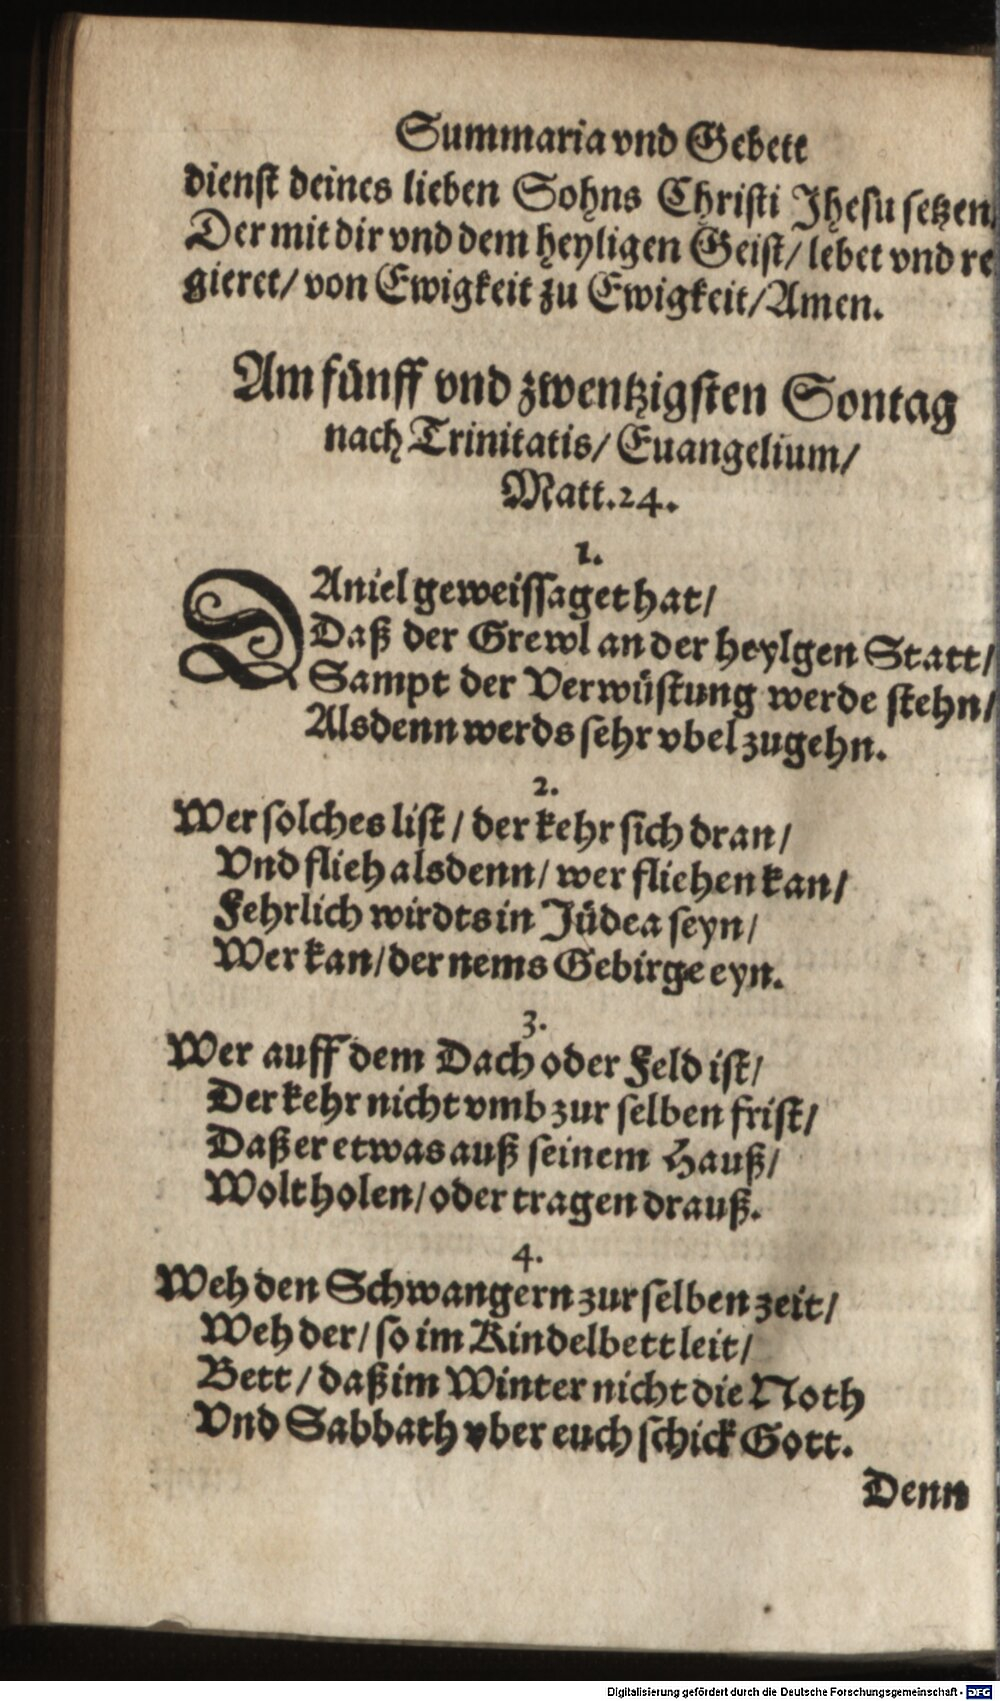 Summaria vnd Gebett
dienst deines lieben Sohns Christi Jhesu setzen.
Der mit dir vnd dem heyligen Geist/ lebet vnd re
gieret/ von Ewigkeit zu Ewigkeit/ Amen.
Am fünff vnd zwentzigsten Sontag
nach Trinitatis/ Euangelium/
Matt. 24.
1.
DAniel geweissaget hat/
Daß der Grewl an der heylgen Statt/
Sampt der Verwüstung werde stehn/
Alsdenn werds sehr vbel zugehn.
2.
Wer solches list/ der kehr sich dran/
Vnd flieh alsdenn/ wer fliehen kan/
Fehrlich wirdts in Jüdea seyn/
Wer kan/ der nems Gebirge eyn.
3.
Wer auff dem Dach oder Feld ist/
Der kehr nicht vmb zur selben frist/
Daß er etwas auß seinem Hauß/
Wolt holen/ oder tragen drauß.
4.
Weh den Schwangern zur selben zeit/
Weh der/ so im Kindelbett leit/
Bett/ daß im Winter nicht die Noth
Vnd Sabbath vber euch schick Gott.
Denn
Digitalisierung gefördert durch die Deutsche Forschungsgemeinschaft - DFG